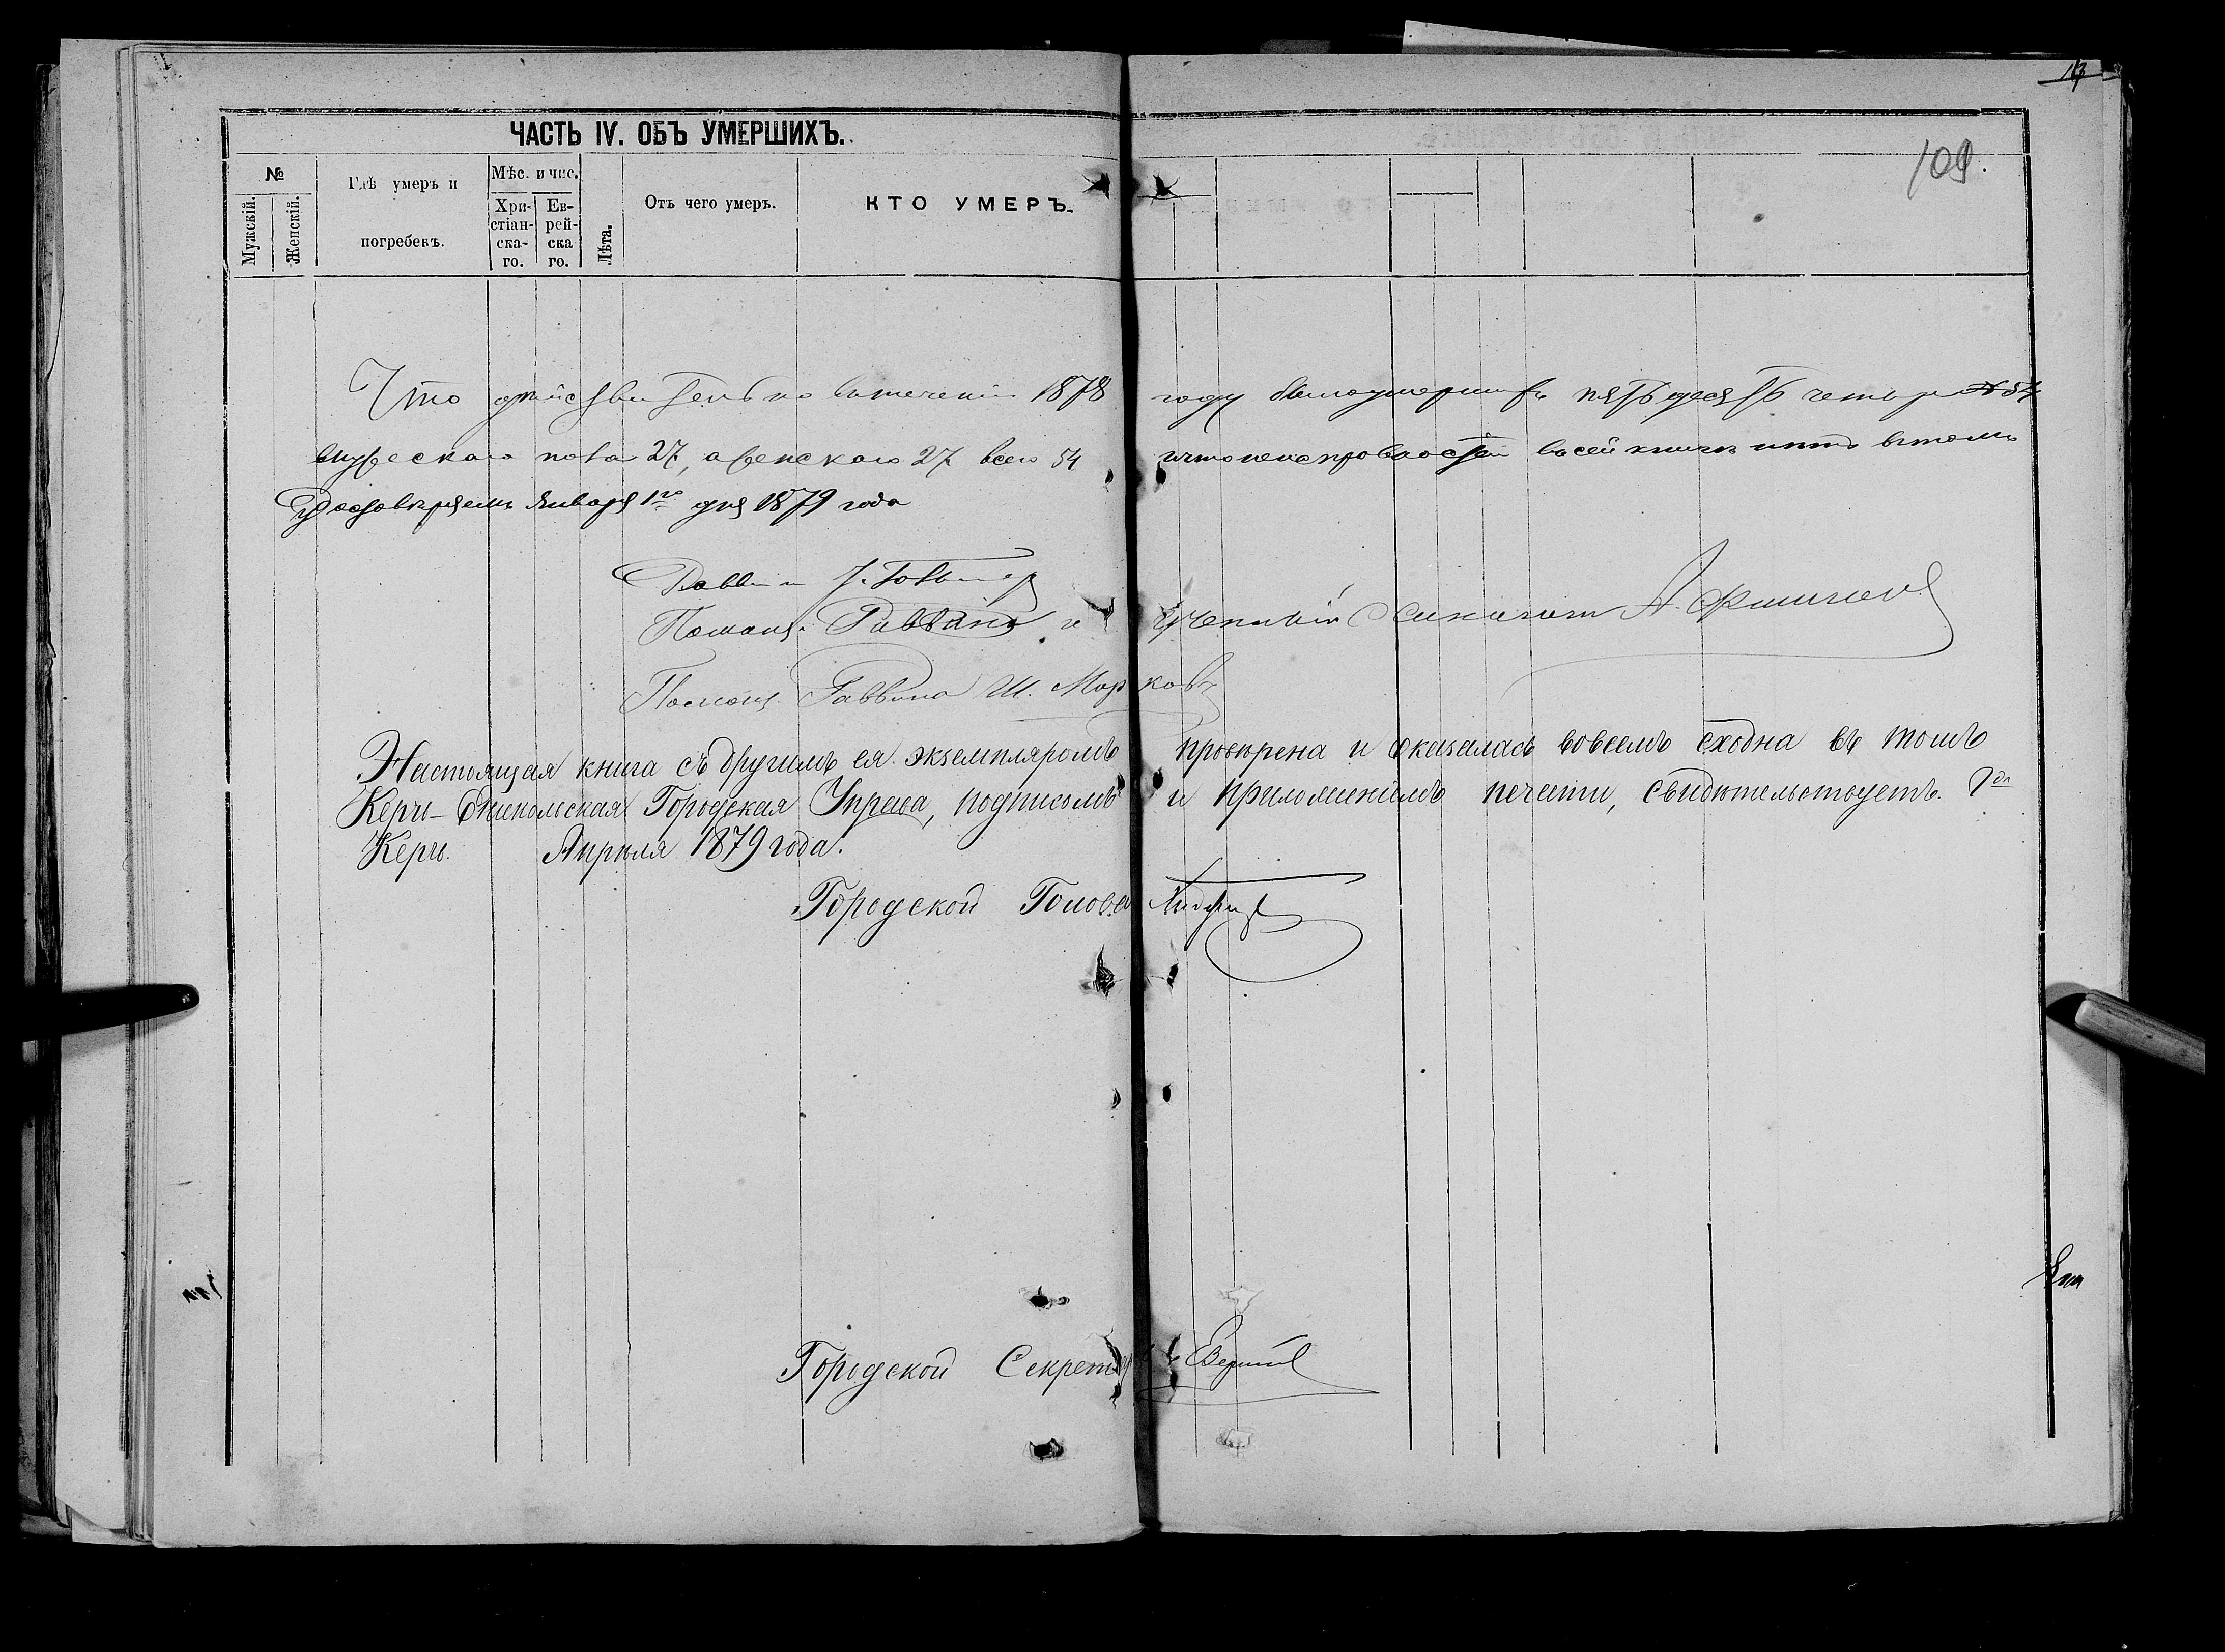 ЧАСТЬ IV. ОБЪ УМЕРШИХЪ.
109.
№
Мужскій.
Женскій.
Гдѣ умеръ и
погребенъ.
Мѣс. и чис.
Хри-
стіан-
ска-
го.
Ев-
рей-
ска
го.
Лѣта.
Отъ чего умеръ.
КТО УМЕРЪ.
Что дѣйствительно втеченіи 1878 году было умершихъ пятьдесятъ четыре № 54
мужескаго пола 27, а женскаго 27 всего 54 и что неисправностей въ сей книгѣ нѣтъ втомъ
Удостовѣряемъ Января 1го дня 1879 года
Раввинъ
Помощ. Раввина и Ученый А.
Помощ. Раввина Ш. Марковъ
Настоящая книга съ другимъ ея экземпляромъ провѣрена и оказалась вовсемъ сходна въ томъ
Керчь-Еникольская Городская Управа, подписомъ и приложеніемъ печати, свидѣтельствуетъ.
Керчь. Апрѣля 1879 года.
Городской Голова
Городской Секретарь